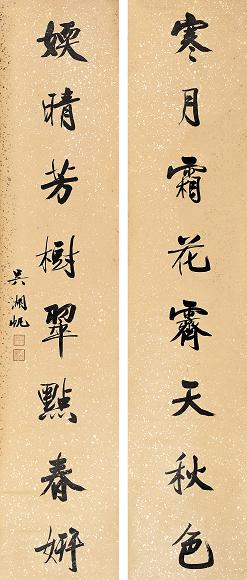 寒月霜花霽天秋色
媆晴芳樹翠點春妍
吳湖帆